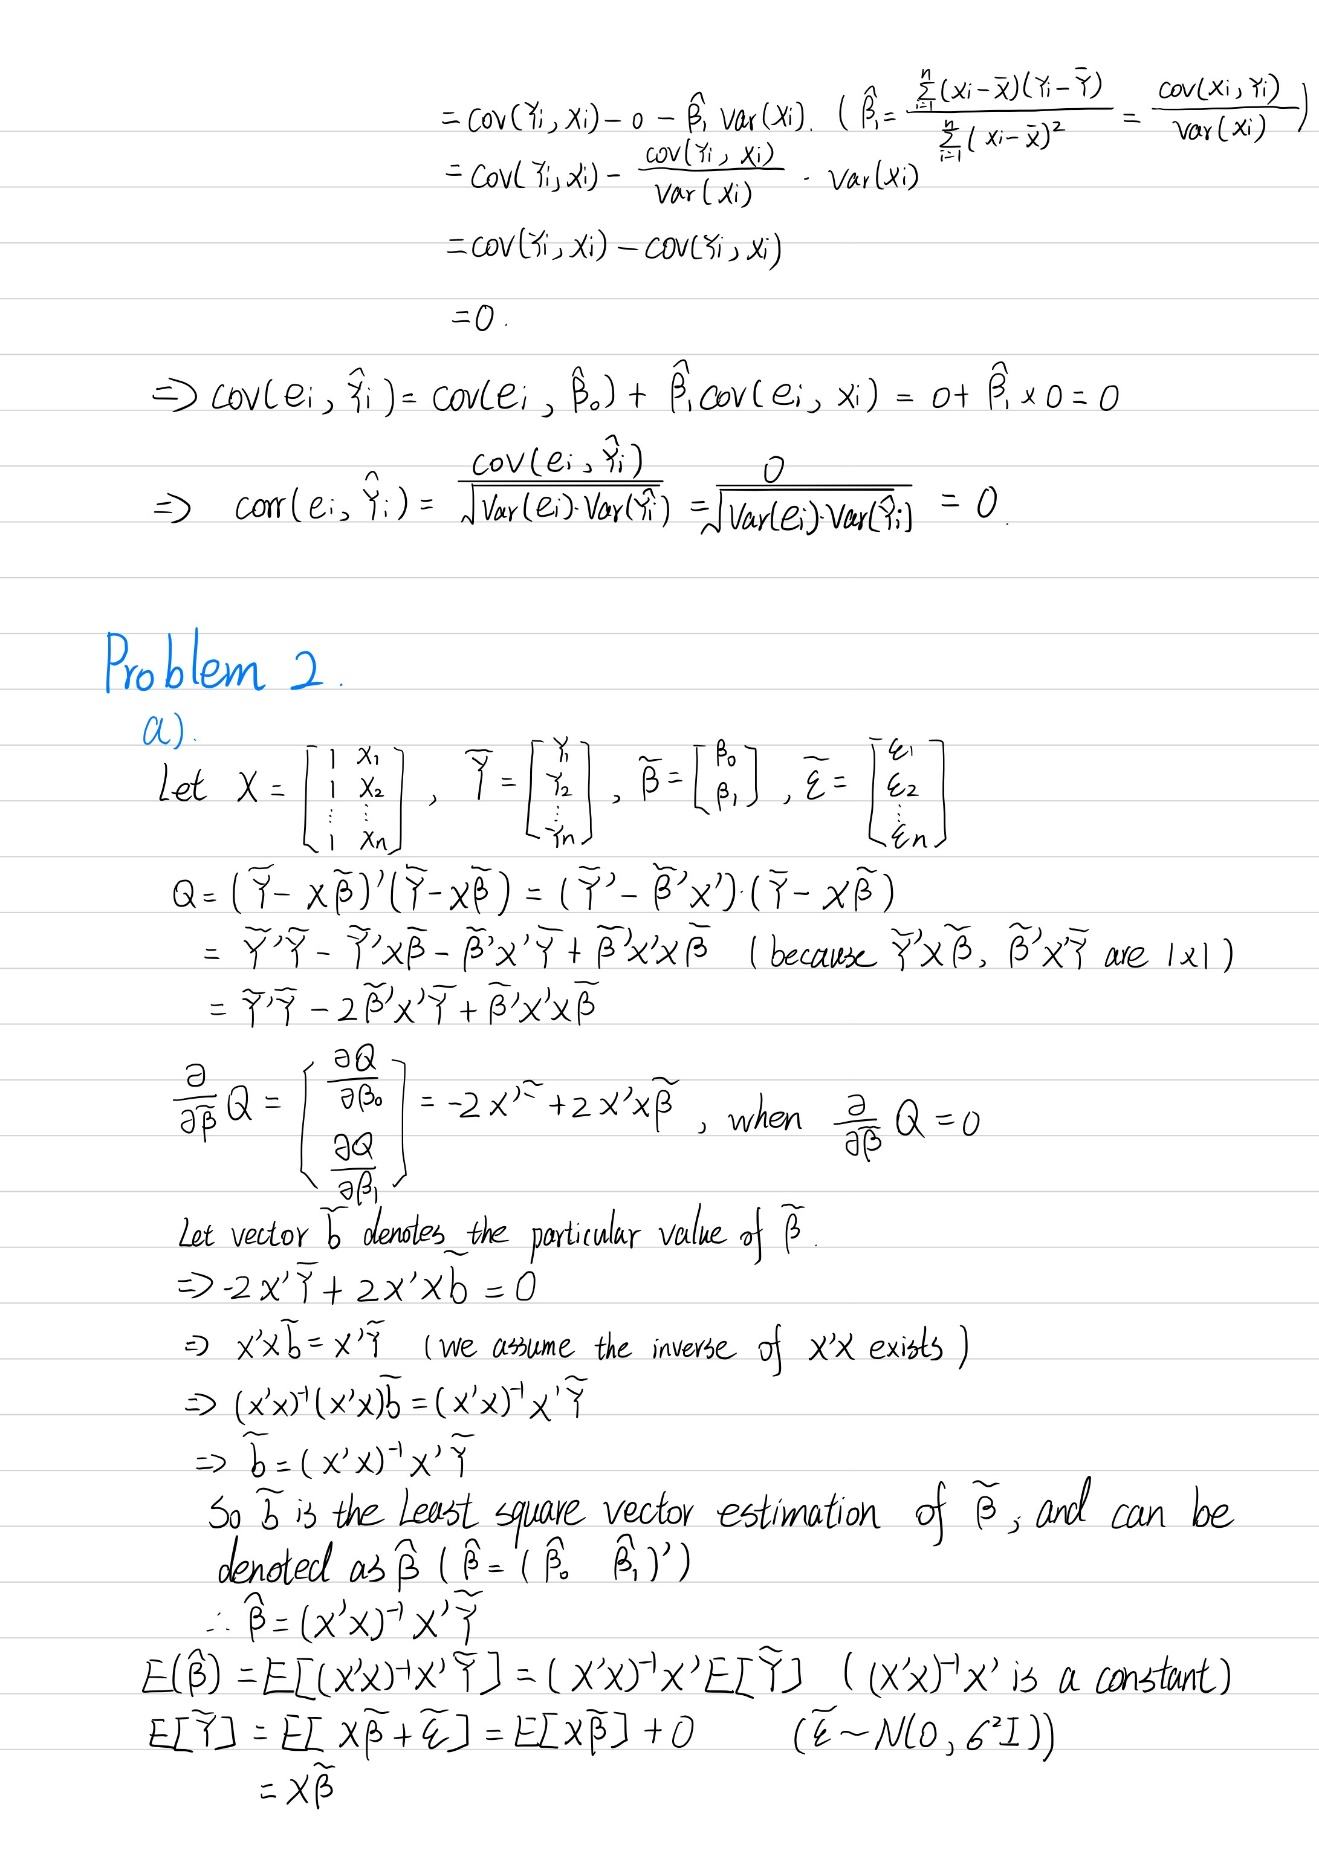 = cov(Yi, Xi) - 0 - β̂₁ Var(Xi). ( β̂₁ = \frac{\sum_{i=1}^{n}(Xi-X̄)(Yi-Ȳ)}{\sum_{i=1}^{n}(Xi-X̄)^2} = \frac{cov(Xi, Yi)}{Var(Xi)} )
= Cov(Yi, Xi) - \frac{cov(Yi, Xi)}{Var(Xi)} · Var(Xi)
= cov(Yi, Xi) - cov(Yi, Xi)
= 0.
⇒ cov(ei, Ŷi) = cov(ei, β̂₀) + β̂₁ cov(ei, Xi) = 0 + β̂₁ × 0 = 0
⇒ corr(ei, Ŷi) = \frac{cov(ei, Ŷi)}{\sqrt{Var(ei)·Var(Ŷi)}} = \frac{0}{\sqrt{Var(ei)·Var(Ŷi)}} = 0.
Problem 2.
a).
Let X = \begin{bmatrix} 1 & X₁ \\ 1 & X₂ \\ ⋮ & ⋮ \\ 1 & Xn \end{bmatrix}, Ỹ = \begin{bmatrix} Y₁ \\ Y₂ \\ ⋮ \\ Yn \end{bmatrix}, β̃ = \begin{bmatrix} β₀ \\ β₁ \end{bmatrix}, ε̃ = \begin{bmatrix} ε1 \\ ε2 \\ ⋮ \\ εn \end{bmatrix}
Q = (Ỹ - Xβ̃)'(Ỹ - Xβ̃) = (Ỹ' - β̃'X')·(Ỹ - Xβ̃)
= Ỹ'Ỹ - Ỹ'Xβ̃ - β̃'X'Ỹ + β̃'X'Xβ̃ (because Ỹ'Xβ̃, β̃'X'Ỹ are 1x1)
= Ỹ'Ỹ - 2β̃'X'Ỹ + β̃'X'Xβ̃
\frac{∂}{∂β̃} Q = \begin{bmatrix} \frac{∂Q}{∂β₀} \\ \frac{∂Q}{∂β₁} \end{bmatrix} = -2X'~ + 2X'Xβ̃, when \frac{∂}{∂β̃} Q = 0
Let vector b̃ denotes the particular value of β̃.
⇒ -2X'Ỹ + 2X'Xb̃ = 0
⇒ X'Xb̃ = X'Ỹ (we assume the inverse of X'X exists)
⇒ (X'X)⁻¹(X'X)b̃ = (X'X)⁻¹X'Ỹ
⇒ b̃ = (X'X)⁻¹X'Ỹ
So b̃ is the Least square vector estimation of β̃, and can be
denoted as β̂ (β̂ = (β̂₀ β̂₁)')
∴ β̂ = (X'X)⁻¹X'Ỹ
E(β̂) = E[(X'X)⁻¹X'Ỹ] = (X'X)⁻¹X'E[Ỹ] ((X'X)⁻¹X' is a constant)
E[Ỹ] = E[Xβ̃ + ε̃] = E[Xβ̃] + 0 (ε̃ ~ N(0, 6²I))
= Xβ̃